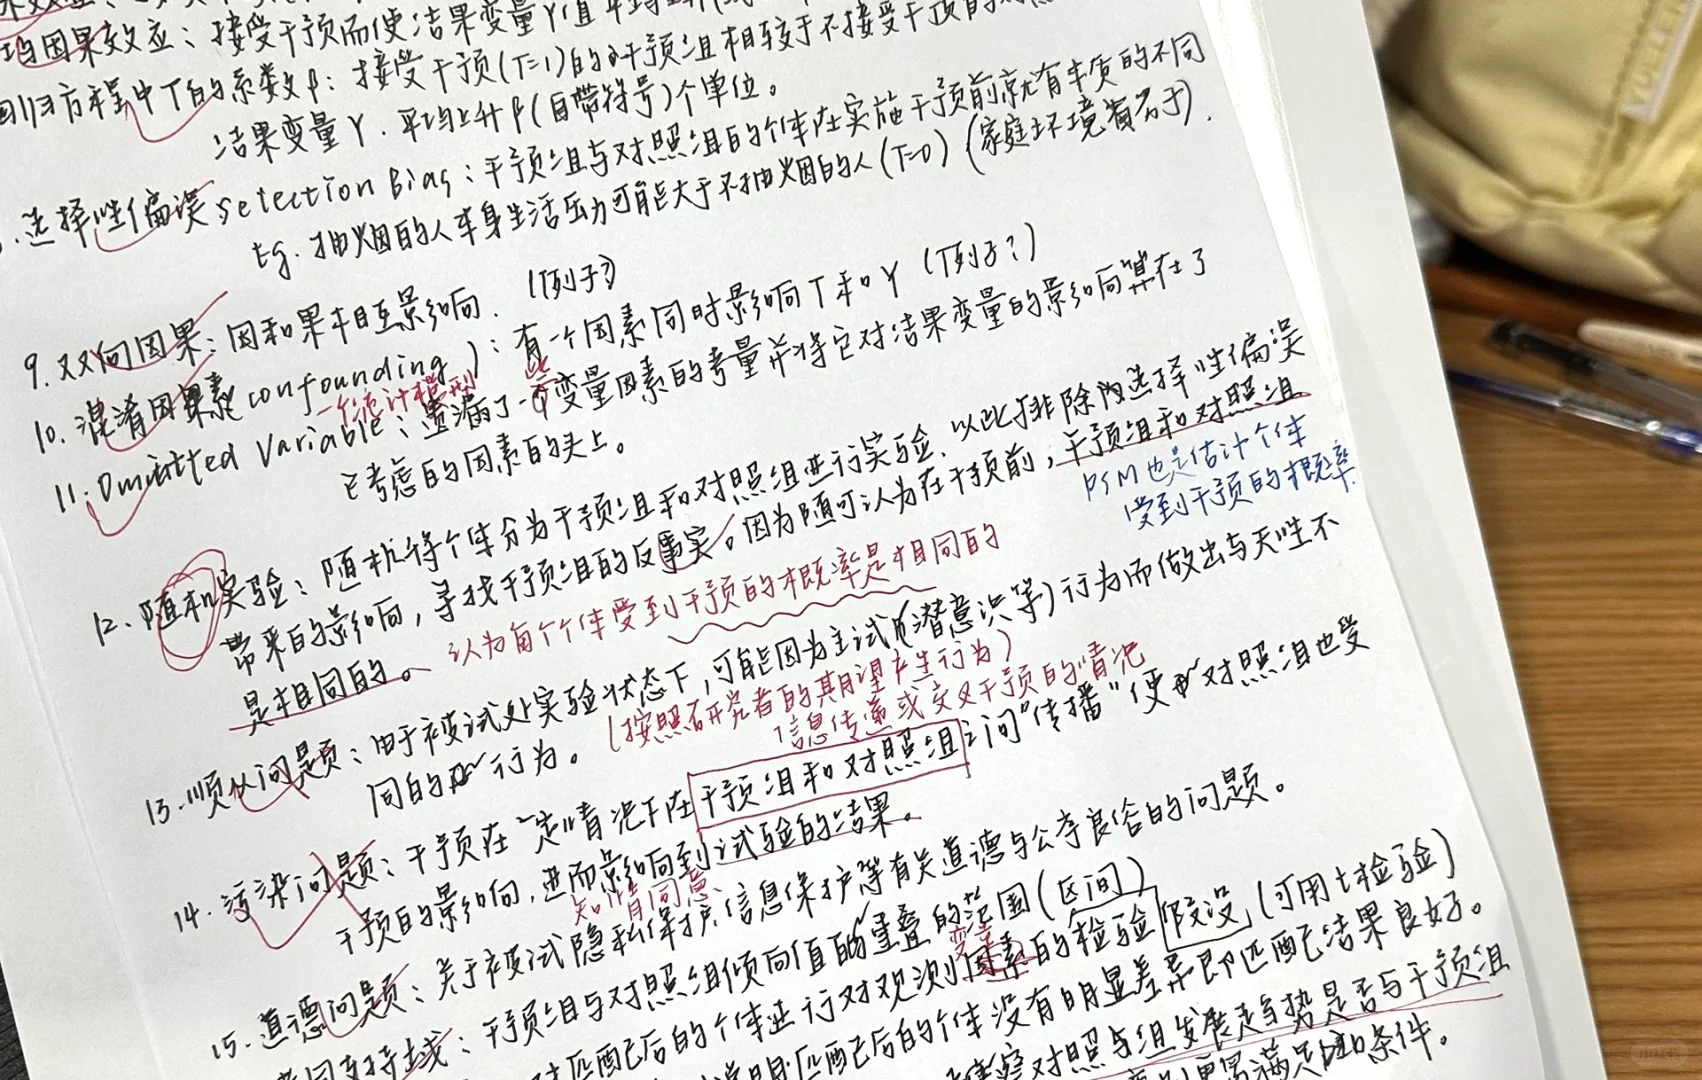 均因果效应：接受干预而使结果变量Y值平均
归方程中T的系数β：接受干预(T=1)的干预组相较于不接受干预的
结果变量Y．平均上升β(自带符号)个单位。
选择性偏误 selection Bias：干预组与对照组的个体在实施干预前就有本质的不同
Eg. 抽烟的人本身生活压力可能大于不抽烟的人(T=0)(家庭环境 于).
9. 双向因果：因和果相互影响． (例子?)
10. 混淆因素(confounding)：有一个因素同时影响T和Y (例子?)
一个统计模型 些
11. Omitted Variable：遗漏了一个变量因素的考量并将它对结果变量的影响"算在了
已考虑的因素的头上。
12. 随机实验：随机将个体分为干预组和对照组进行实验．以此排除因选择性偏误
带来的影响，寻找干预组的反事实。因为随可认为在干预前，干预组和对照组
是相同的。 认为每个个体受到干预的概率是相同的
PSM也是估计个体
受到干预的概率.
13. 顺从问题：由于被试处实验状态下，可能因为主试(潜意识等)行为而做出与天性不
同的 行为。 (按照研究者的期望产生行为)
信息传递或交叉干预的情况
14. 污染问题：干预在一定情况下在干预组和对照组之间"传播"使 对照组也受
干预的影响，进而影响到试验的结果。
知情同意
15. 道德问题：关于被试隐私保护、信息保护等有关道德与公序良俗的问题。
共同支持域：干预组与对照组倾向值的重叠的范围(区间)
变量
对匹配后的个体进行对观测因素的检验 假设 (可用t检验)
说明匹配后的个体没有明显差异即匹配结果良好。
对照与组发展趋势是否与干预组
满足 条件。
YUELEN
小红书